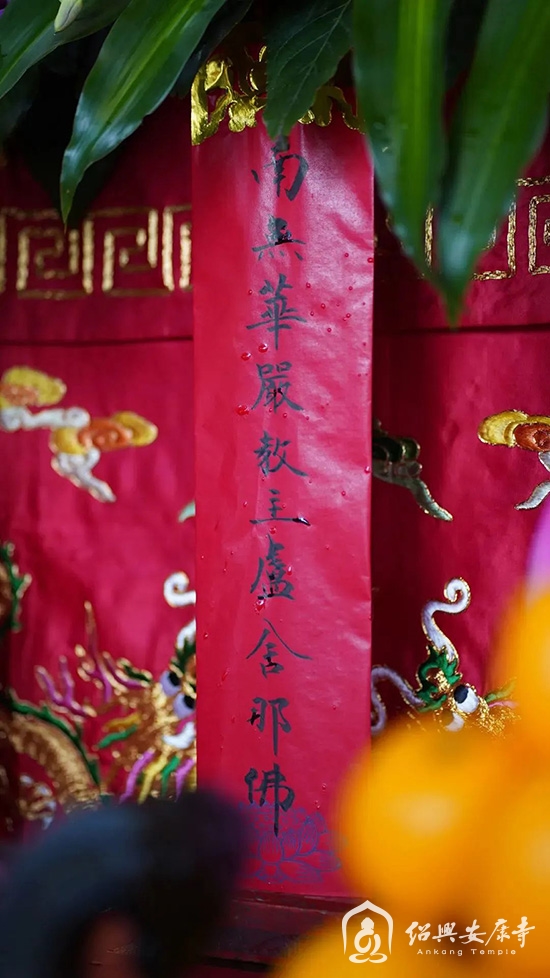 南無華嚴教主盧舍那佛
紹興安康寺
Ankang Temple